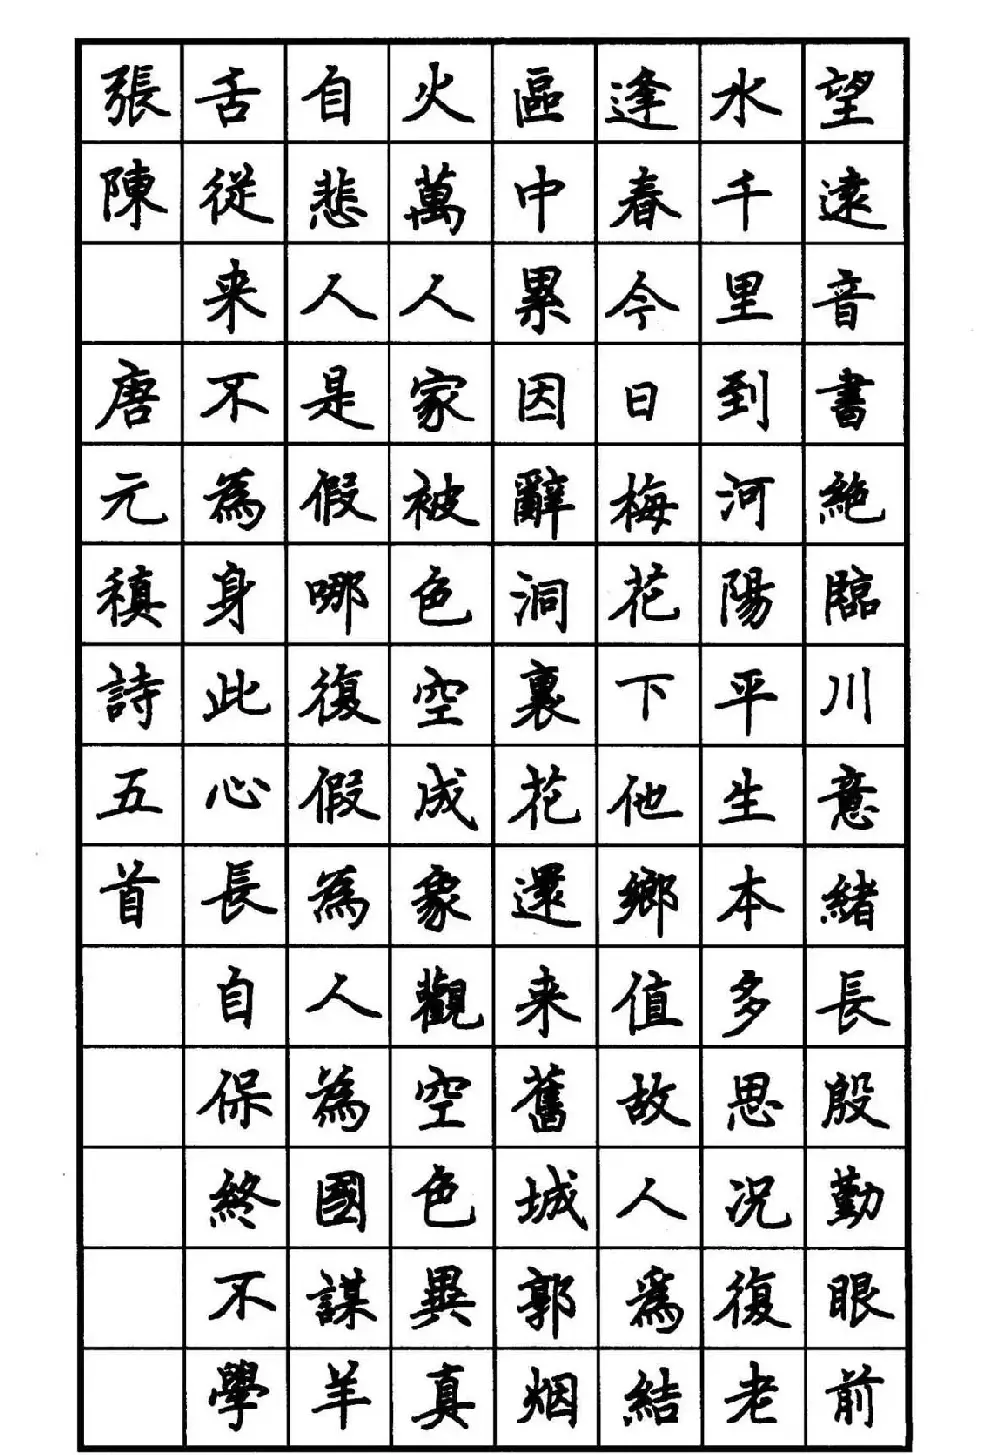 望遠音書絶臨川意緒長殷勤眼前
水千里到河陽平生本多思況復老
逢春今日梅花下他鄉值故人為結
區中累因辭洞裏花還来舊城郭烟
火萬人家被色空成象觀空色異真
自悲人是假哪復假為人為國謀羊
舌從来不為身此心長自保終不學
張陳 唐元稹詩五首